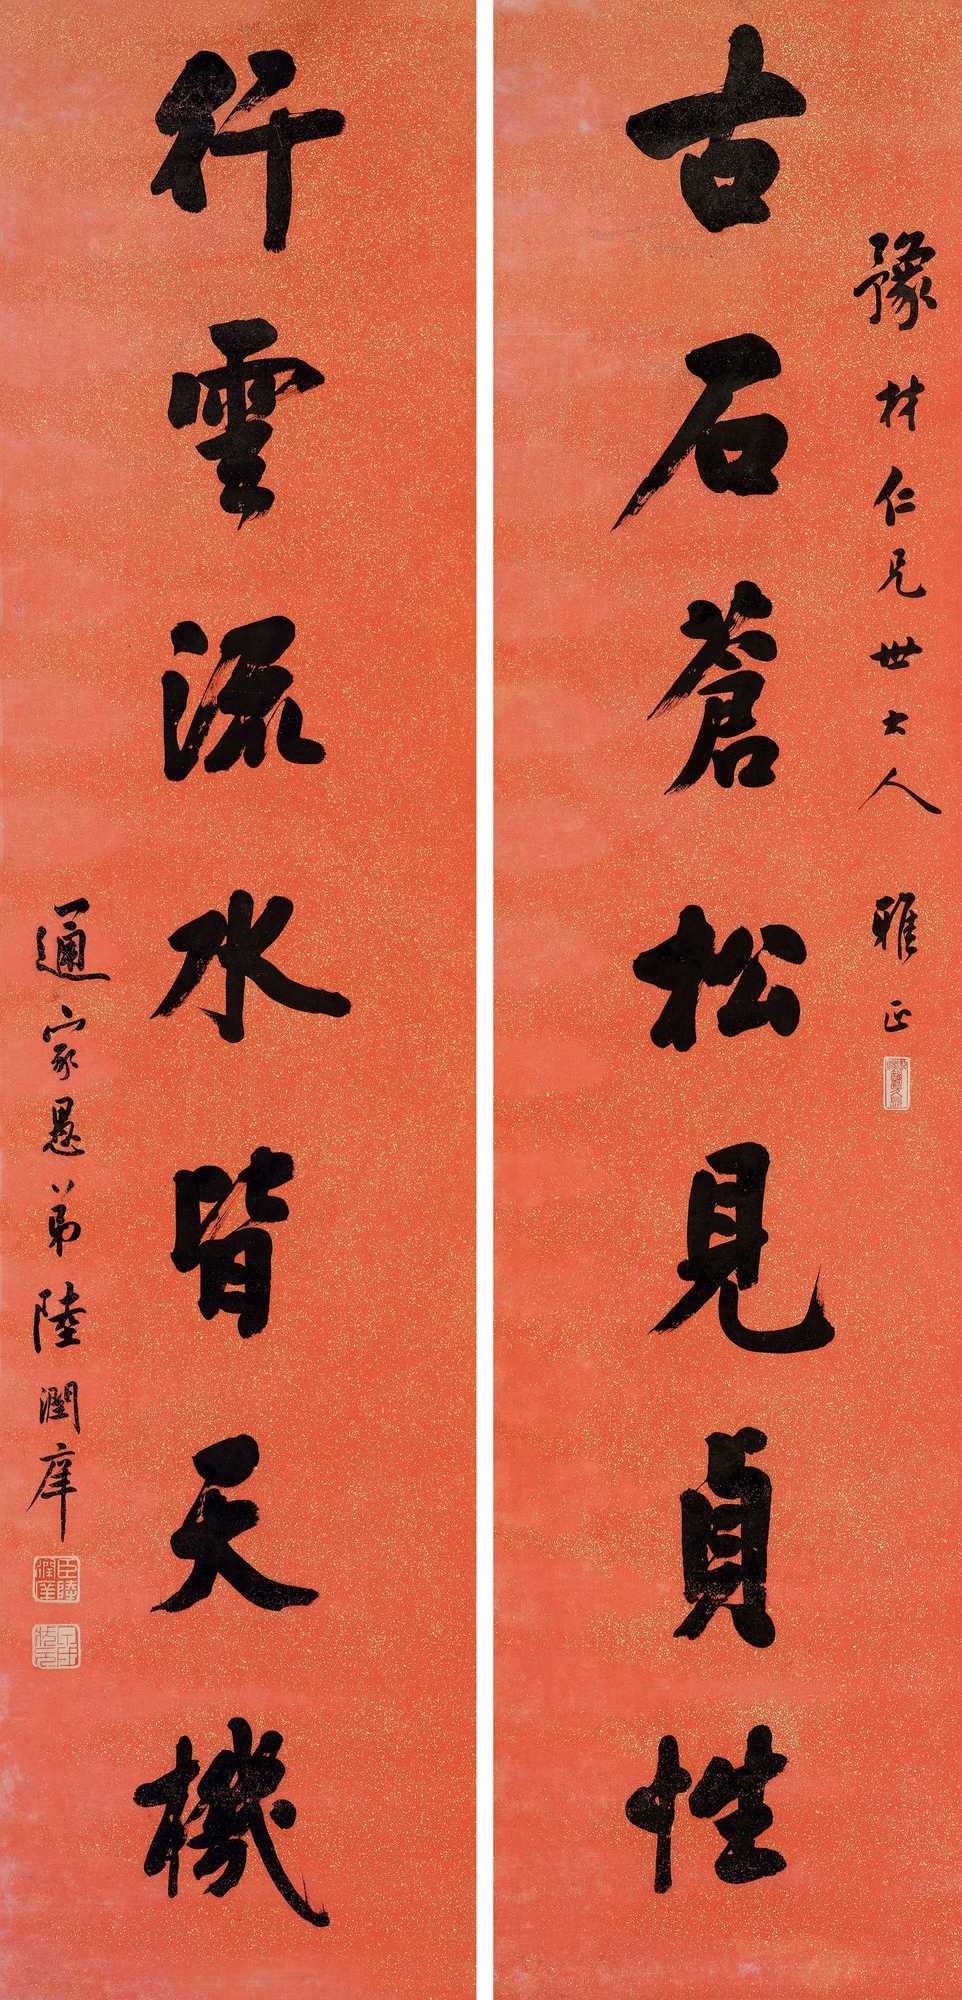 豫材仁兄世大人雅正
古石蒼松見貞性
行雲流水皆天機
通家愚弟陸潤庠
臣陸潤庠